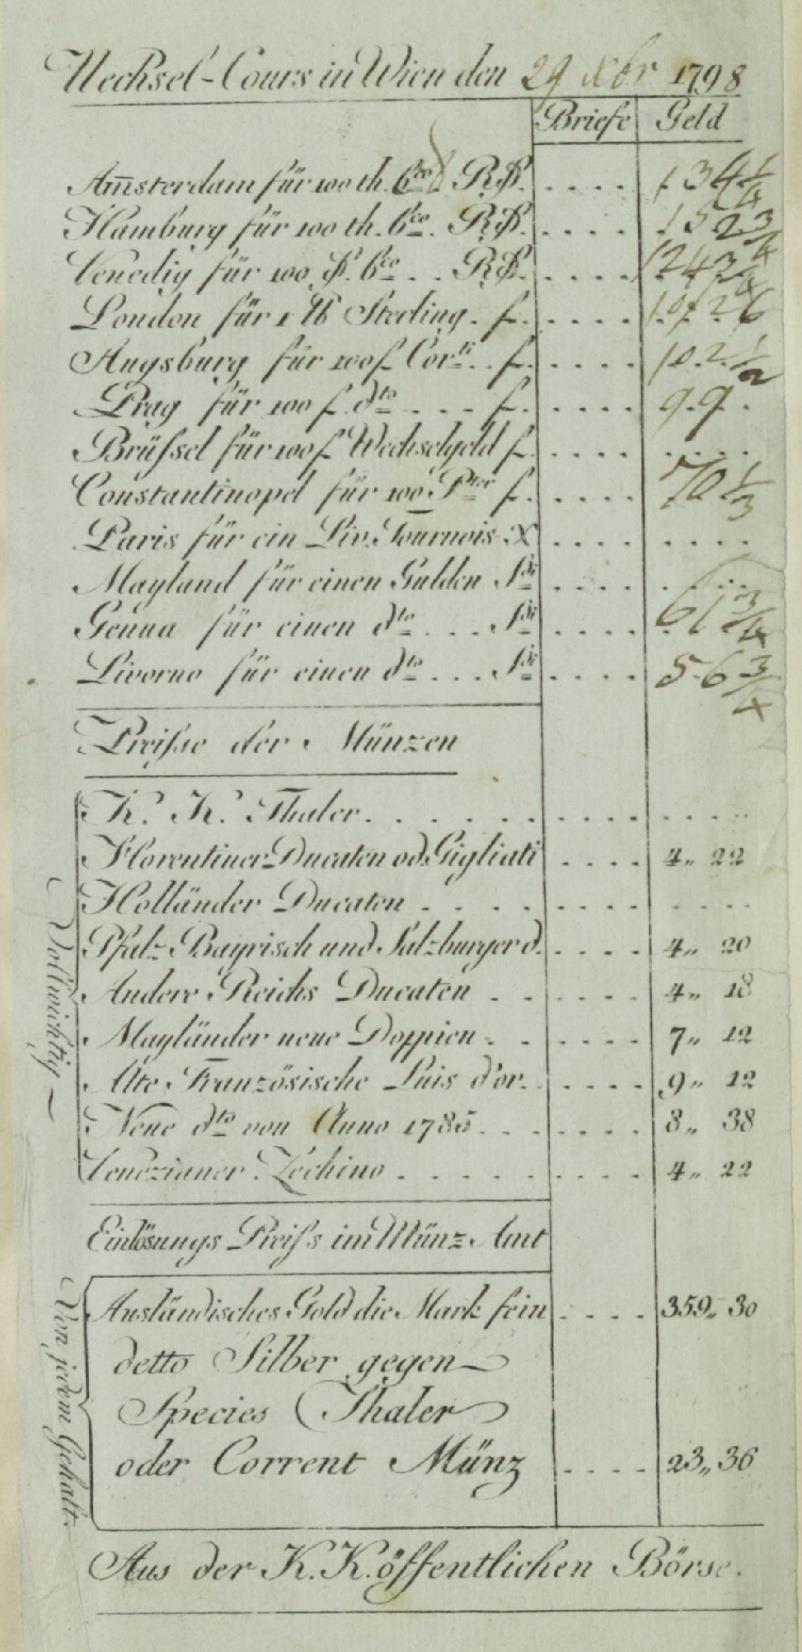 Wechsel-Cours in Wien den 29 Xbr 1798
Briefe Geld
Am̄sterdam für 100 th. bco. R. . . . . 134 1/4
Hamburg für 100 th. bco. R. . . . . 152 3/4
Venedig für 100 bco. . . R. . . . .
London für 1 ℔ Sterling. f. . . . .
Augsburg für 100 f. Corti. . f. . . . . 102 1/2
Prag für 100 f. dto . . . f. . . . . 99.
Brüssel für 100 f. Wechselgeld f. . . . . . . . .
Constantinopel für 100 Ptre f. . . . . 70 1/3
Paris für ein Liv. Tournois X . . . . . . . .
Mayland für einen Gulden Sdi . . . . . . . .
Genua für einen dto. . . . Sdi . . . . 61 3/4
Livorno für einen dto. . . . Sdi . . . . 56 3/4
Preisse der Münzen
Vollwichtig
K. K. Thaler. . . . . . . . . . . . . .
Florentiner Ducaten od. Gigliati . . . . 4„ 22
Holländer Ducaten . . . . . . . . . . . .
Pfalz Bayrisch und Salzburger d. . . . . 4„ 20
Andere Reichs Ducaten . . . . . . . 4„ 18
Mayländer neue Doppien . . . . . . . 7„ 12
Alte Französische Luis d'or. . . . . . 9„ 12
Neue dto von Anno 1785 . . . . . . . 8„ 38
Venezianer Zechino . . . . . . . . . . 4„ 22
Einlösungs Preiss im Münz Amt
Von jedem Gehalt.
Ausländisches Gold die Mark fein . . . . 359„ 30
detto Silber gegen
Species Thaler
oder Corrent Münz . . . . 23„ 36
Aus der K. K. öffentlichen Börse.